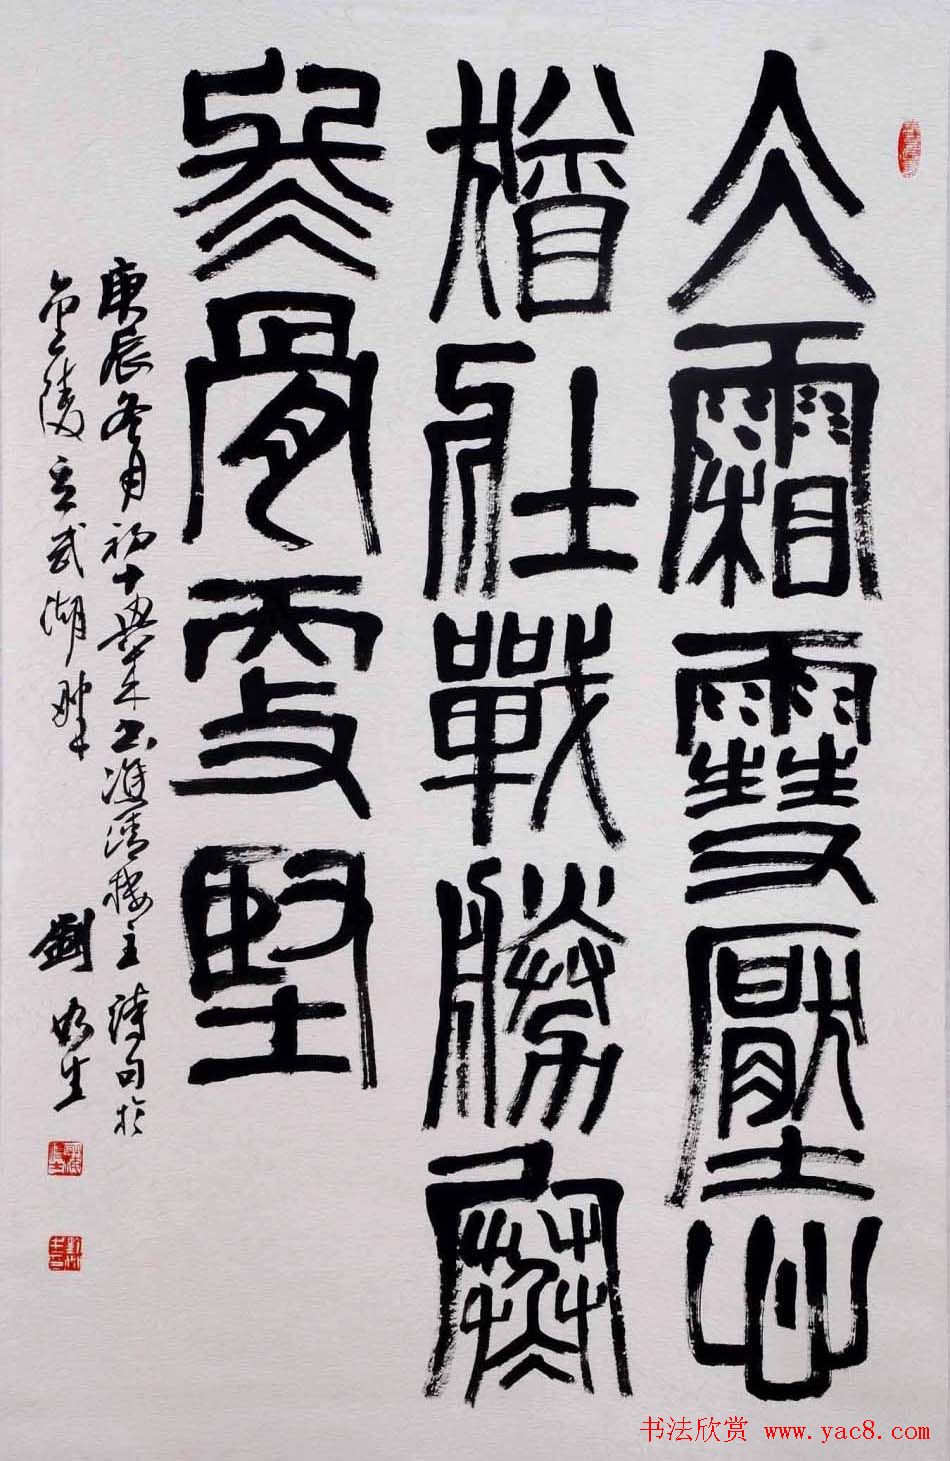 大霜雪壓心
猶壯戰勝寒
冬骨更堅
庚辰冬月初十興來書清樓主詩句於
金陵玄武湖畔 劉生
书法欣赏 www.yac8.com